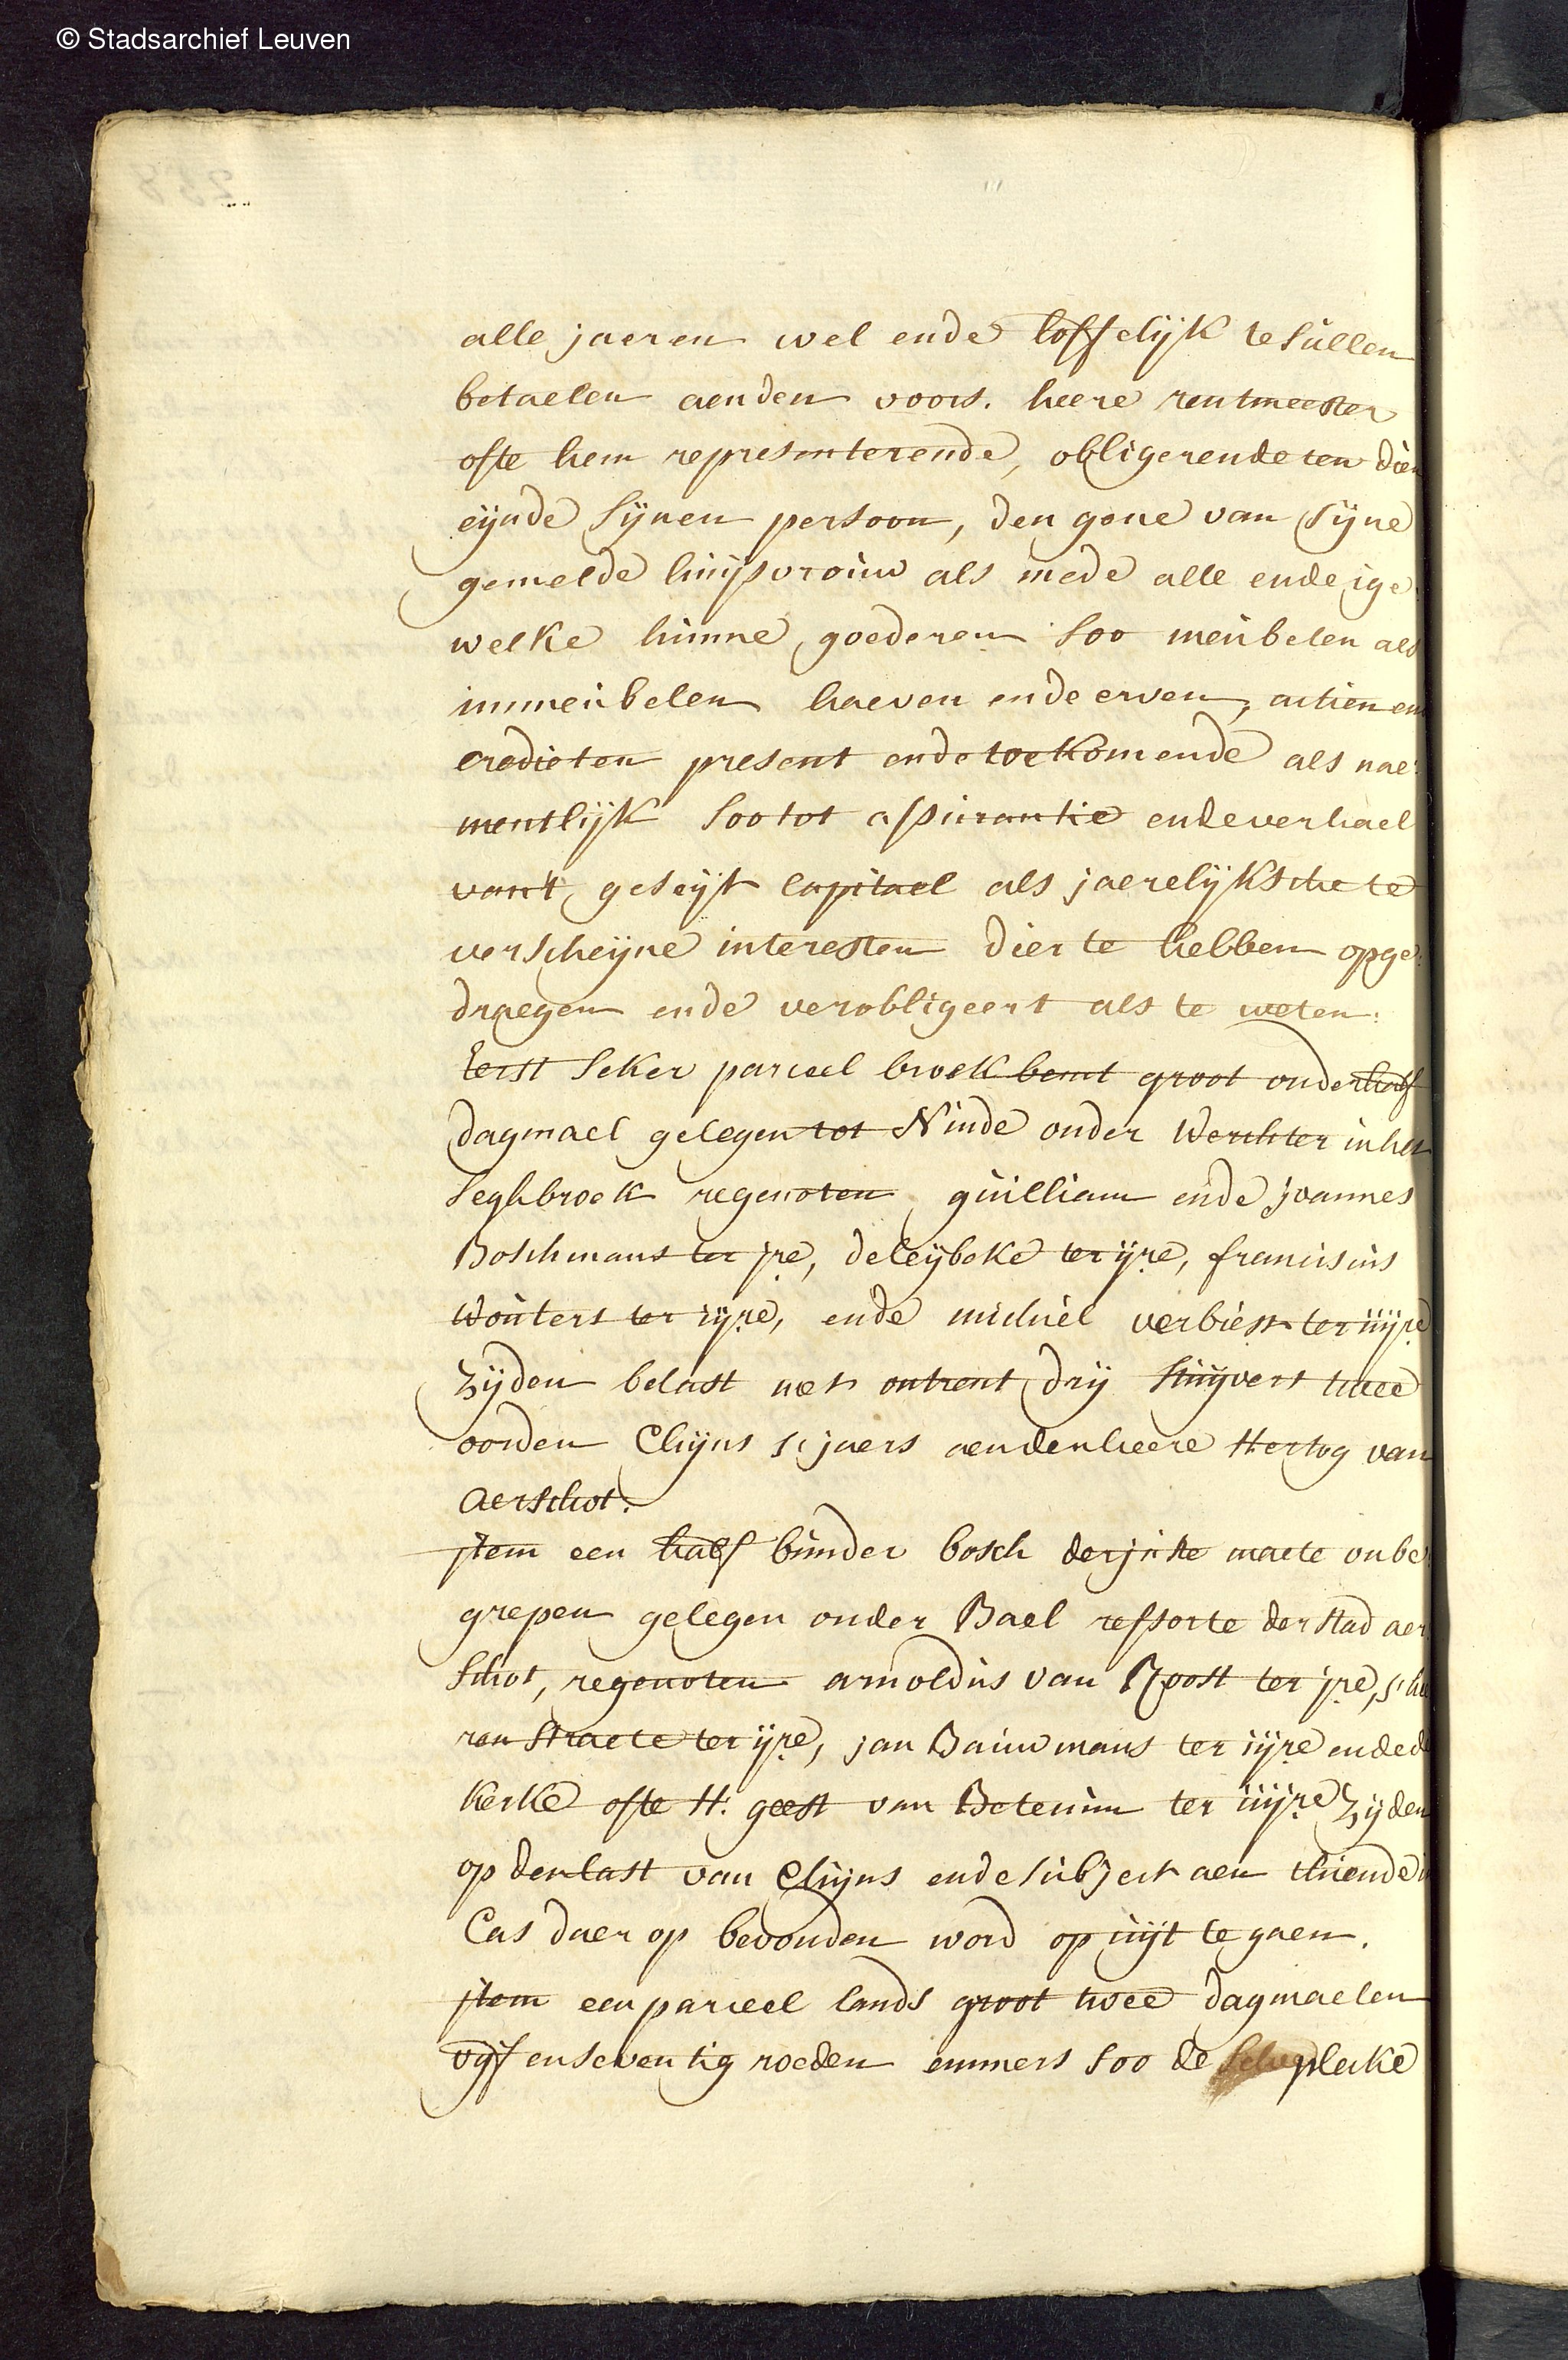 © Stadsarchief Leuven
alle jaeren wel ende loffelijk te sullen
betaelen aenden voors. heere rentmeester
ofte hem representerende, obligerende ten dien
eijnde sijnen persoon, den gone van sijne
gemelde huijsvrouw als mede alle ende ige:
welke hunne goederen soo meubelen als
immeubelen haeven ende erven, actien en
credieten present ende toekomende als nae:
mentlijk soo tot assurantie ende verhael
van't geseijt capitael als jaerelijksche te
verscheijne interesten dier te hebben opge:
draegen ende verobligeert als te weten:
Eerst seker parceel broek bemt groot onderhalf
dagmael gelegen tot Ninde onder Werchter in het
seghbroek regenoten guilliam ende joannes
Boschmans ter jre, de leijbeke ter ijre, franciscus
Wouters ter iijre, ende michiel verbiest ter iiijre
zijden belast met ontrent drij stuijvers twee
oorden Chijns s'jaers aenden heere Hertog van
Aerschot.
jtem een half bunder bosch der juste maete onbe:
grepen gelegen onder Bael ressorte der stad aer:
schot, regenoten arnoldus van Roost ter jre, s'he
ren straete ter ijre, jan Bauwmans ter iijre ende de
kerke ofte H: geest van Betecum ter iiijre zijden
op den last van Chijns ende subject aen thiende in
Cas daer op bevonden word op uijt te gaen.
jtem een parceel lands groot twee dagmaelen
vijf en seventig roeden emmers soo de plecke